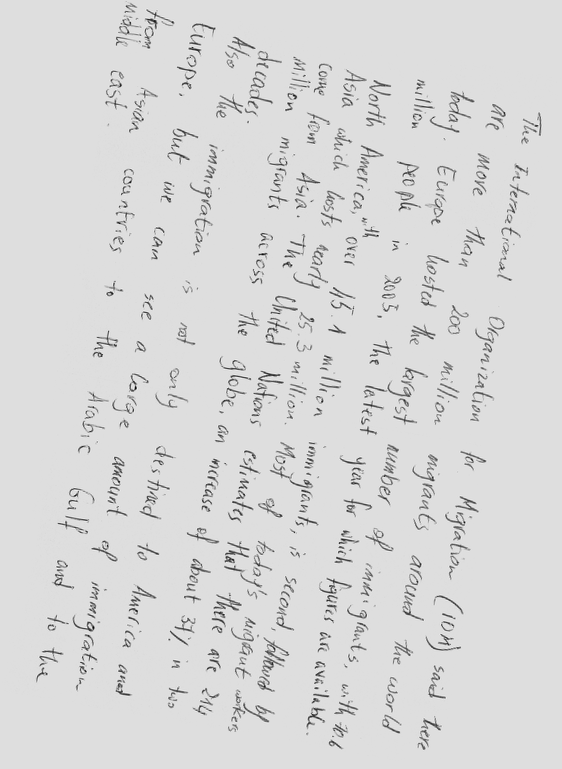 The International Organization for Migration (IOM) said there
are more than 200 million migrants around the world
today. Europe hosted the largest number of immigrants, with 70.6
million people in 2005, the latest year for which figures are available.
North America, with over 45.1 million immigrants, is second followed by
Asia which hosts nearly 25.3 million. Most of today's migrant workers
come from Asia. The United Nations estimates that there are 214
million migrants across the globe, an increase of about 37% in two
decades.
Also the immigration is not only destined to America and
Europe, but we can see a large amount of immigration
from Asian countries to the Arabic Gulf and to the
middle east.